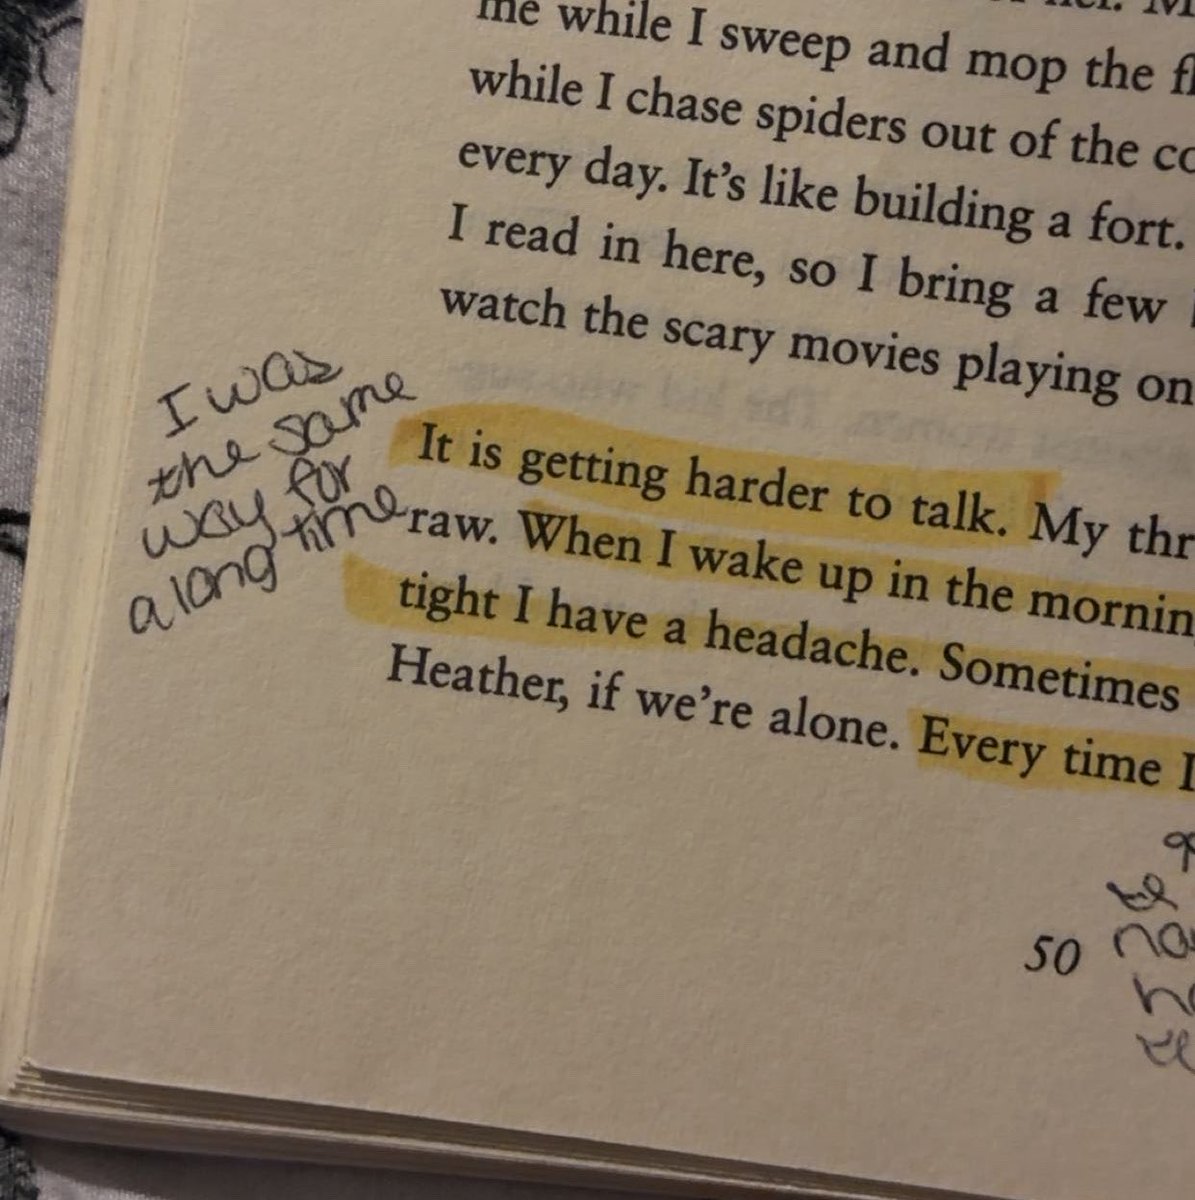 me while I sweep and mop the
while I chase spiders out of the
every day. It's like building a fort.
I read in here, so I bring a few
watch the scary movies playing on
It is getting harder to talk. My
raw. When I wake up in the
tight I have a headache. Sometimes
Heather, if we're alone. Every time I
I was
the same
way for
a long time
50